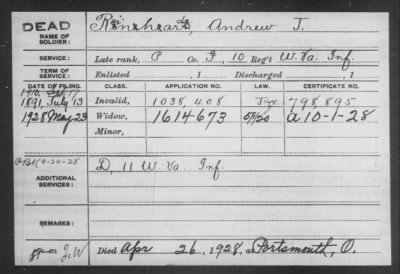 DEAD
NAME OF SOLDIER:
Rineheart, Andrew J.
SERVICE:
Late rank, P Co. I, 10 Reg't W. Va. Inf.
TERM OF SERVICE:
Enlisted , 1 Discharged , 1
DATE OF FILING. CLASS. APPLICATION NO. LAW. CERTIFICATE NO.
1891, July 13 Invalid, 1038,408 798,895
1928 May 23 Widow, 1614673 a 10-1-28
Minor,
ADDITIONAL SERVICES:
D, 11 W. Va. Inf.
REMARKS:
J.W Died Apr 26, 1928, at Portsmouth, O.